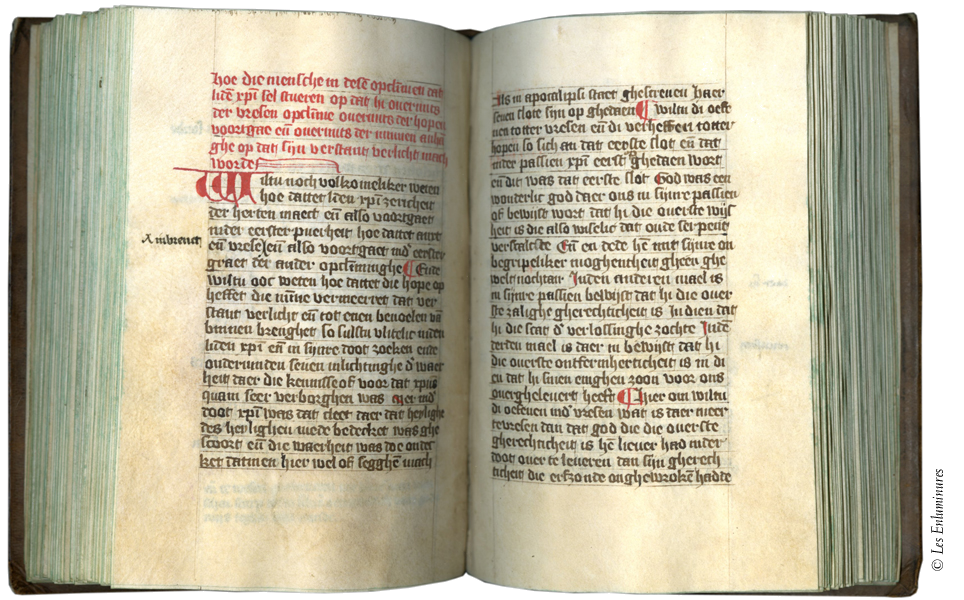 hoe die mensche in desē opclīmen dat
lidē xp̄i sel stueren op dat hi ouermits
der vresen opclīme ouermits der hopen
voortgae eñ ouermits der minnen anhā
ghe op dat sijn verstant verlicht mach
worde
Wiltu noch volkomeliker weten
hoe dattet lidē xp̄i zericheit
der herten maect eñ also voortgaet
inder eerster puerheit hoe dattet anxt
eñ vresē eñ also voortgaet indē eersten
graet der ander opclīminghe Ende
wiltu ooc weten hoe dattet die hope op
heffet die mīne vermeerret dat ver
stant verlicht eñ tot enen bevoelen vā
binnen brenghet so sulstu vlitelic inden
liden xp̄i eñ in sijnre doot zoeken ende
ondervinden seuen inlichtinghe der waer
heit daer die kennisse of voor dat xp̄us
quam seer verborghen was
doot xp̄i was dat cleet daer dat heylighe
des heylighen mede bedecket was ghe
scoort eñ die waerheit was doe ontde
ket datmen hier wel of segghē mach
Als in apocalipsi staet ghescreuen haer
seuen slote sijn op ghedaen wiltu di oeff
nen totter vresen eñ di verheffen totter
hopen so sich an dat eerste slot eñ dat
inder passien xp̄i eerst ghedaen wort
eñ dit was dat eerste slot God was een
wonderlic god daer ons in sijnre passien
of bewist wort dat hi die ouerste wijs
heit is die also wiselic dat oude serpent
verscalcte Eñ en dede hē mit sijnre on
begripeliker moghentheit gheen ghe
welt nochtan Inden anderen mael is
in sijnre passien bewijst dat hi die ouer
ste zalighe gherechticheit is In dien dat
hi die scat der verlossinghe zochte Indē
derden mael is daer in bewijst dat hi
die ouerste ontfermherticheit is in di
en dat hi sinen enighen zoon voor ons
ouergheleuert heeft Hier om wiltu
di oeffenen indē vresen wat is daer meer
te vresen dan dat god die die ouerste
gherechticheit is hē lieuer had inder
doot ouer te leueren dan sijn gherech
ticheit die erfzonde onghewrokē hadde
© Les Enluminures